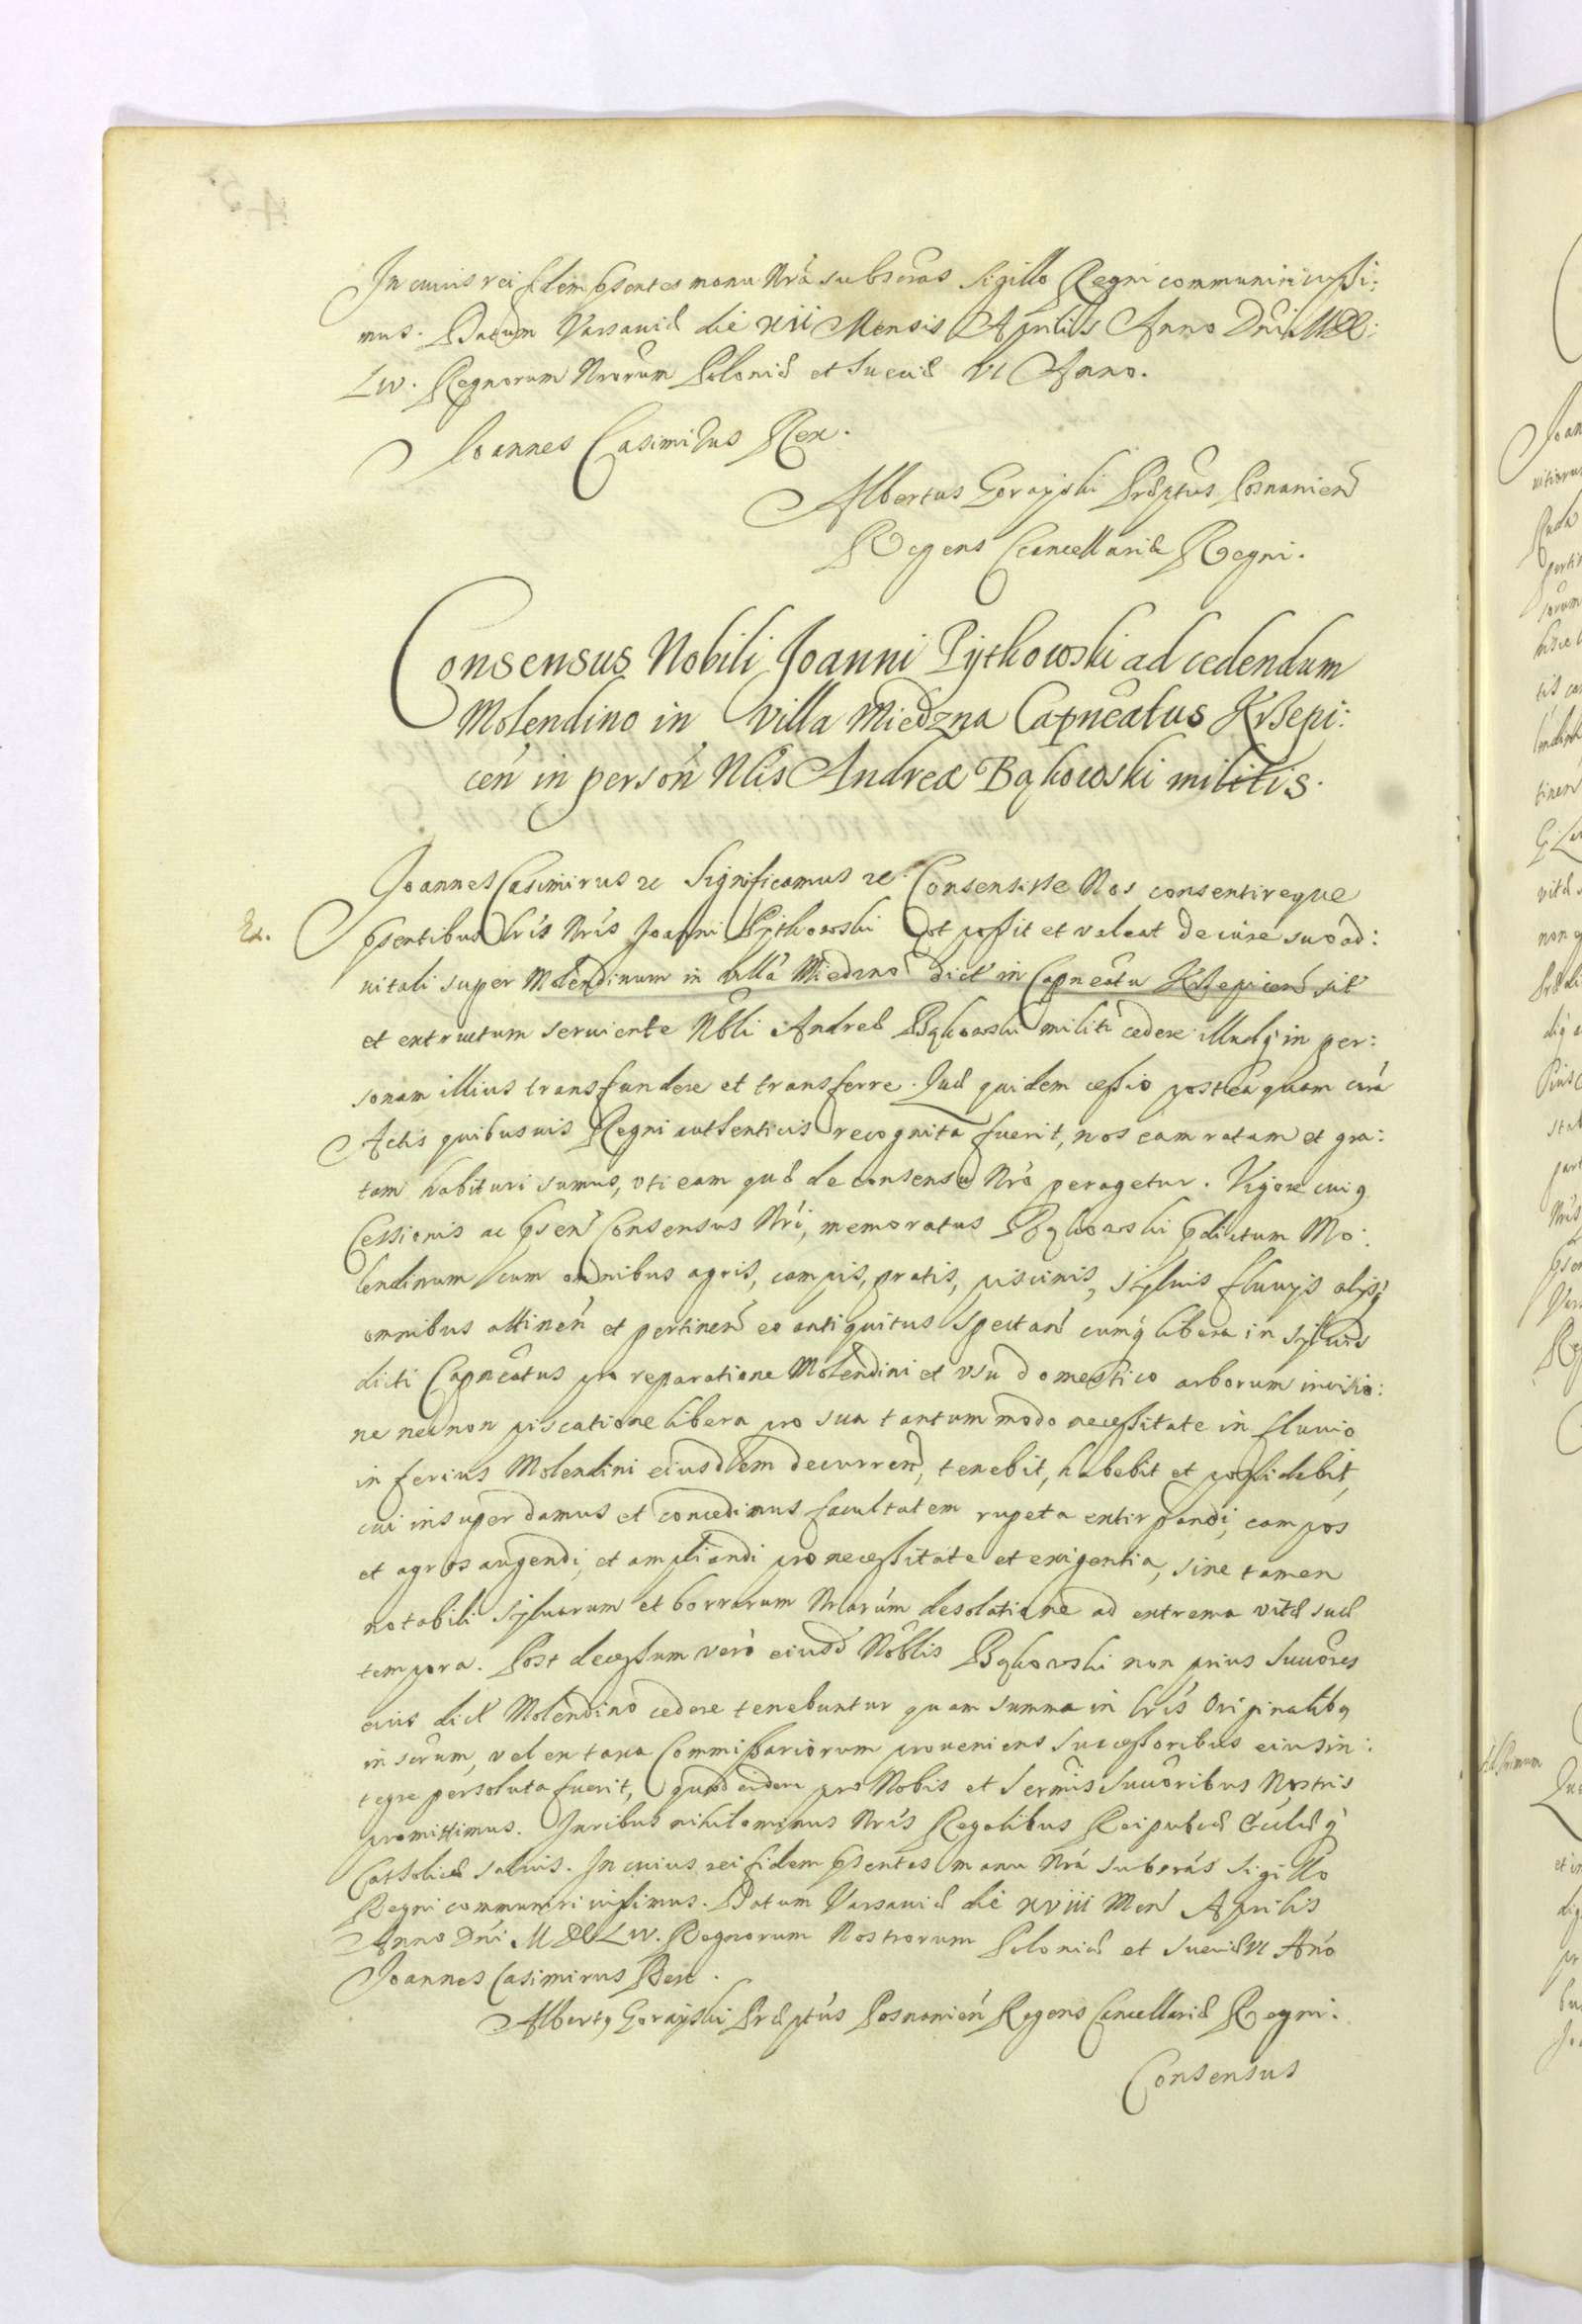 In cuius rei fidem p̄sentes manu Nrā subscrās Sigillo Regni communiri iussi:
mus. Datum Varsaviæ die XII Mensis Aprilis Anno Dn̄i MDC:
LIV. Regnorum Nrōrum Poloniæ et Sueciæ VI Anno.
Joannes Casimirus Rex.
Albertus Gorayski Præptus Posnanien̄
Regens Cancellariæ Regni.
Consensus Nobili Joanni Pytkowski ad cedendum
Molendino in Villa Miedzna Capnēatus Krzepi:
cen̄ in person̄ Nlis Andreæ Bąkowski militis.
Joannes Casimirus etc Significamus etc. Consensisse Nos consentireque
Ex. p̄sentibus Lrīs Nrīs Joanni Pytkowski ut possit et valeat de iure suo ad:
vitali super Molendinum in villa Miedzno dict̄ in Capnēatu Krzepicen̄ sit̄
et extructum serviente Nbli Andreæ Bąkowski militi cedere illudq in per:
sonam illius transfundere et transferre. Quæ quidem cessio postea quam corā
Actis quibusuis Regni authenticis recognita fuerit, nos eam ratam et gra:
tam habituri sumus, uti eam quæ de consensu Nrō peragetur. Vigore cuiq
Cessionis ac p̄sen̄ Consensus Nrī, memoratus Bąkowski p̄dictum Mo:
lendinum cum omnibus agris, campis, pratis, piscinis, sylvis fluvijs alijsq
omnibus attinen̄ et pertinen̄ eo antiquitus spectan̄ cumq libera in sylvis
dicti Capnēatus pro reparatione Molendini et usu domestico arborum incisio:
ne necnon piscatione libera pro sua tantummodo necessitate in fluvio
inferius Molendini eiusdem decurren̄, tenebit, habebit et possidebit,
cui insuper damus et concedimus facultatem rupeta extirpandi, campos
et agros augendi, et ampliandi pro necessitate et exigentia, sine tamen
notabili sylvarum et borrarum Nrarūm desolatione ad extrema vitæ suæ
tempora. Post decessum vero eiusd Nōblis Bąkowski non prius Succōres
eius dict̄ Molendino cedere tenebuntur quam summa in Lrīs Originalibq
inscrūm, vel ex taxa Commissariorum proveniens Successoribus eius in:
tegre persoluta fuerit, quod eidem pro Nobis et Sermīs Succōribus Nostris
promittimus. Juribus nihilominus Nrīs Regalibus Reipubcæ Ecclæq
Catholicæ salvis. In cuius rei fidem p̄sentes manu Nrā subscrās Sigillo
Regni communiri iussimus. Datum Varsaviæ die XVIII Men̄ Aprilis
Anno Dn̄i MDCLIV. Regnorum Nostrorum Poloniæ et Sueciæ VI An̄o
Joannes Casimirus Rex.
Albertq Gorayski Præptūs Posnanien̄ Regens Cancellariæ Regni.
Consensus